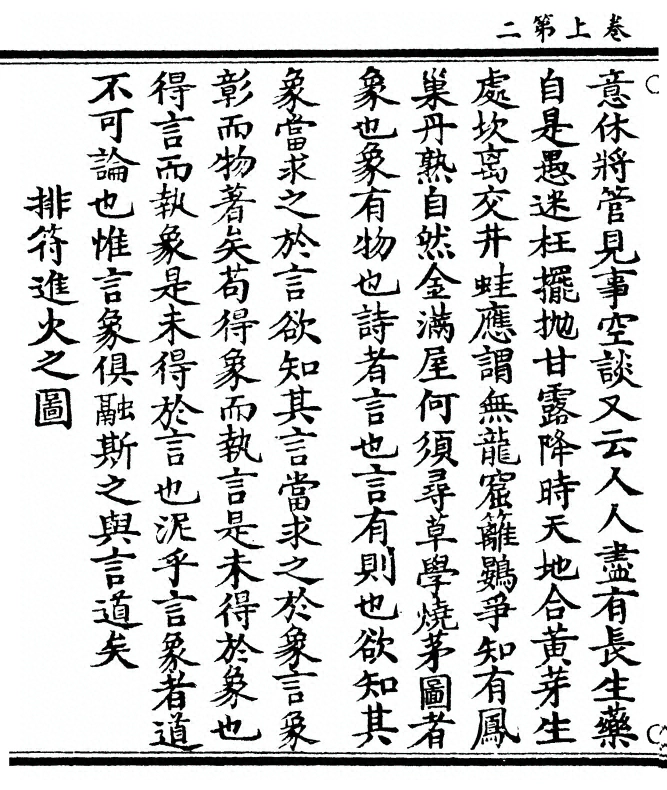 卷上第二
意休將管見事空談又云人人盡有長生藥
自是愚迷枉擺抛甘露降時天地合黃芽生
處坎离交井蛙應謂無龍窟籬鷃爭知有鳳
巢丹熟自然金滿屋何須尋草學燒茅圖者
象也象有物也詩者言也言有則也欲知其
象當求之於言欲知其言當求之於象言象
彰而物著矣苟得象而執言是未得於象也
得言而執象是未得於言也泥乎言象者道
不可論也惟言象俱融斯之與言道矣
排符進火之圖